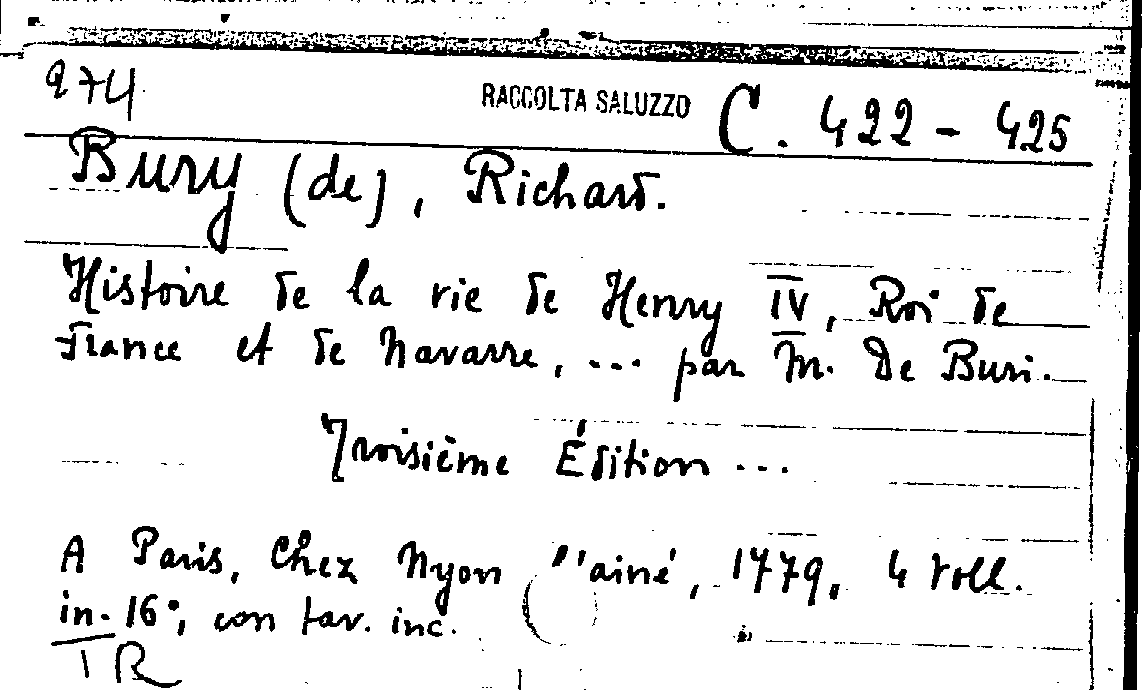 274 RACCOLTA SALUZZO C. 422 - 425
Bury (de), Richard.
Histoire de la vie de Henry IV, Roi de
France et de Navarre, ... par M. De Buri.
Troisième Édition ...
A Paris, Chez Nyon l'ainé, 1779, 4 voll.
in-16°, con tav. inc.
TR